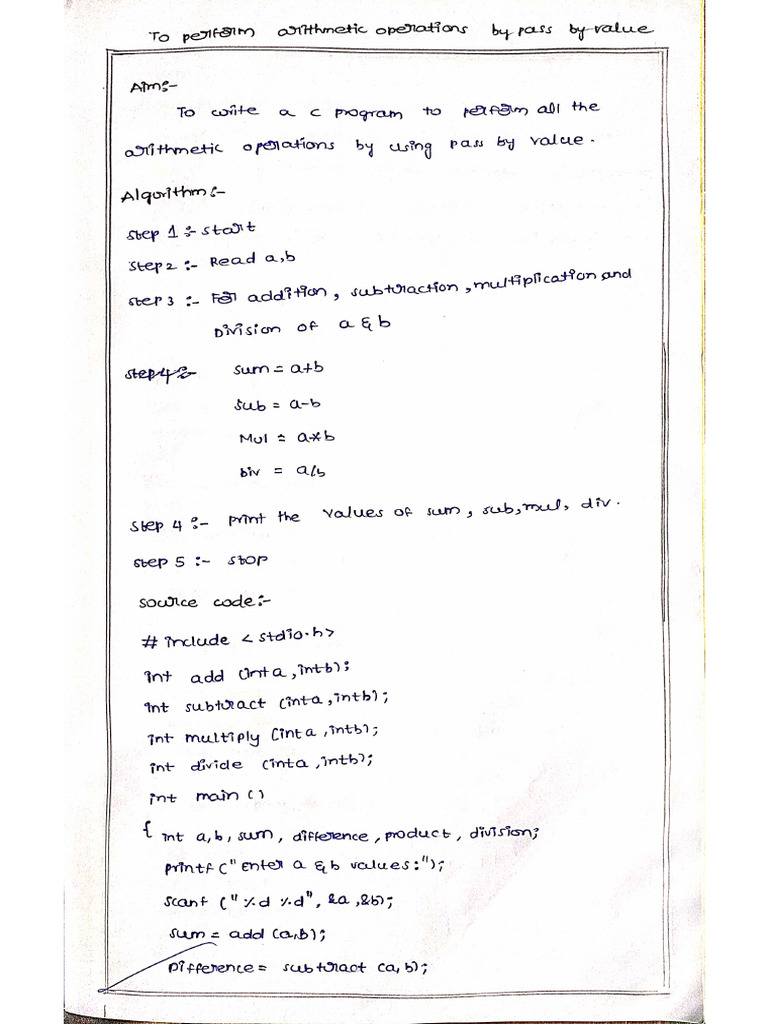 To perform arithmetic operations by pass by value
Aim:-
To write a c program to perform all the
arithmetic operations by using pass by value.
Algorithm:-
Step 1 :- Start
Step 2 :- Read a,b
Step 3 :- For addition, subtraction, multiplication and
Division of a & b
Step 4 :- sum = a+b
Sub = a-b
Mul = a*b
Div = a/b
Step 4 :- print the values of sum, sub, mul, div.
Step 5 :- stop
source code:-
# include < stdio.h>
int add (int a, int b);
int subtract (int a, int b);
int multiply (int a, int b);
int divide (int a, int b);
int main ()
{ int a, b, sum, difference, product, division;
printf ("enter a & b values:");
scanf ("%d %d", &a, &b);
sum = add (a,b);
Difference = subtract (a, b);